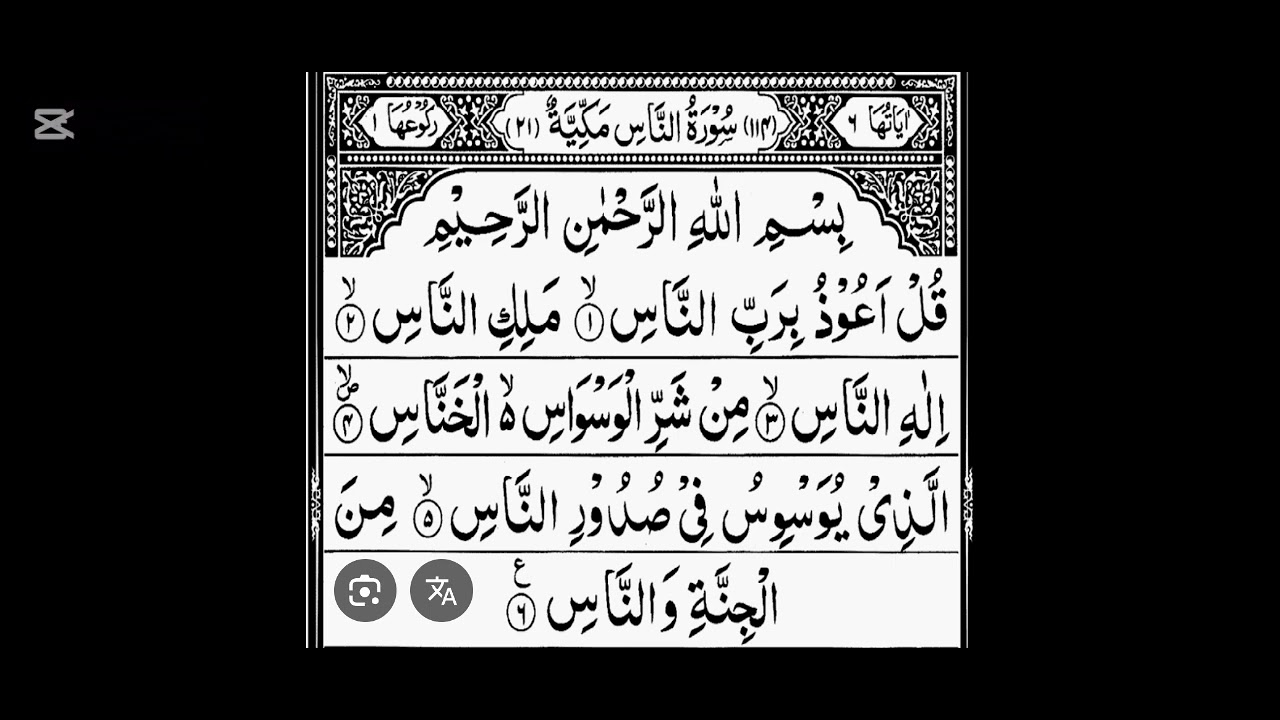 اٰيَاتُهَا ٦ (١١٤) سُوْرَةُ النَّاسِ مَكِّيَّةٌ (٢١) رُكُوْعُهَا ١
بِسْمِ اللّٰهِ الرَّحْمٰنِ الرَّحِيْمِ
قُلْ اَعُوْذُ بِرَبِّ النَّاسِ ۙ﴿۱﴾ مَلِكِ النَّاسِ ۙ﴿۲﴾
اِلٰهِ النَّاسِ ۙ﴿۳﴾ مِنْ شَرِّ الْوَسْوَاسِ ۬ۙ الْخَنَّاسِ ۪ۙ﴿۴﴾
الَّذِىْ يُوَسْوِسُ فِىْ صُدُوْرِ النَّاسِ ۙ﴿۵﴾ مِنَ
الْجِنَّةِ وَالنَّاسِ ﴿۶﴾ ع